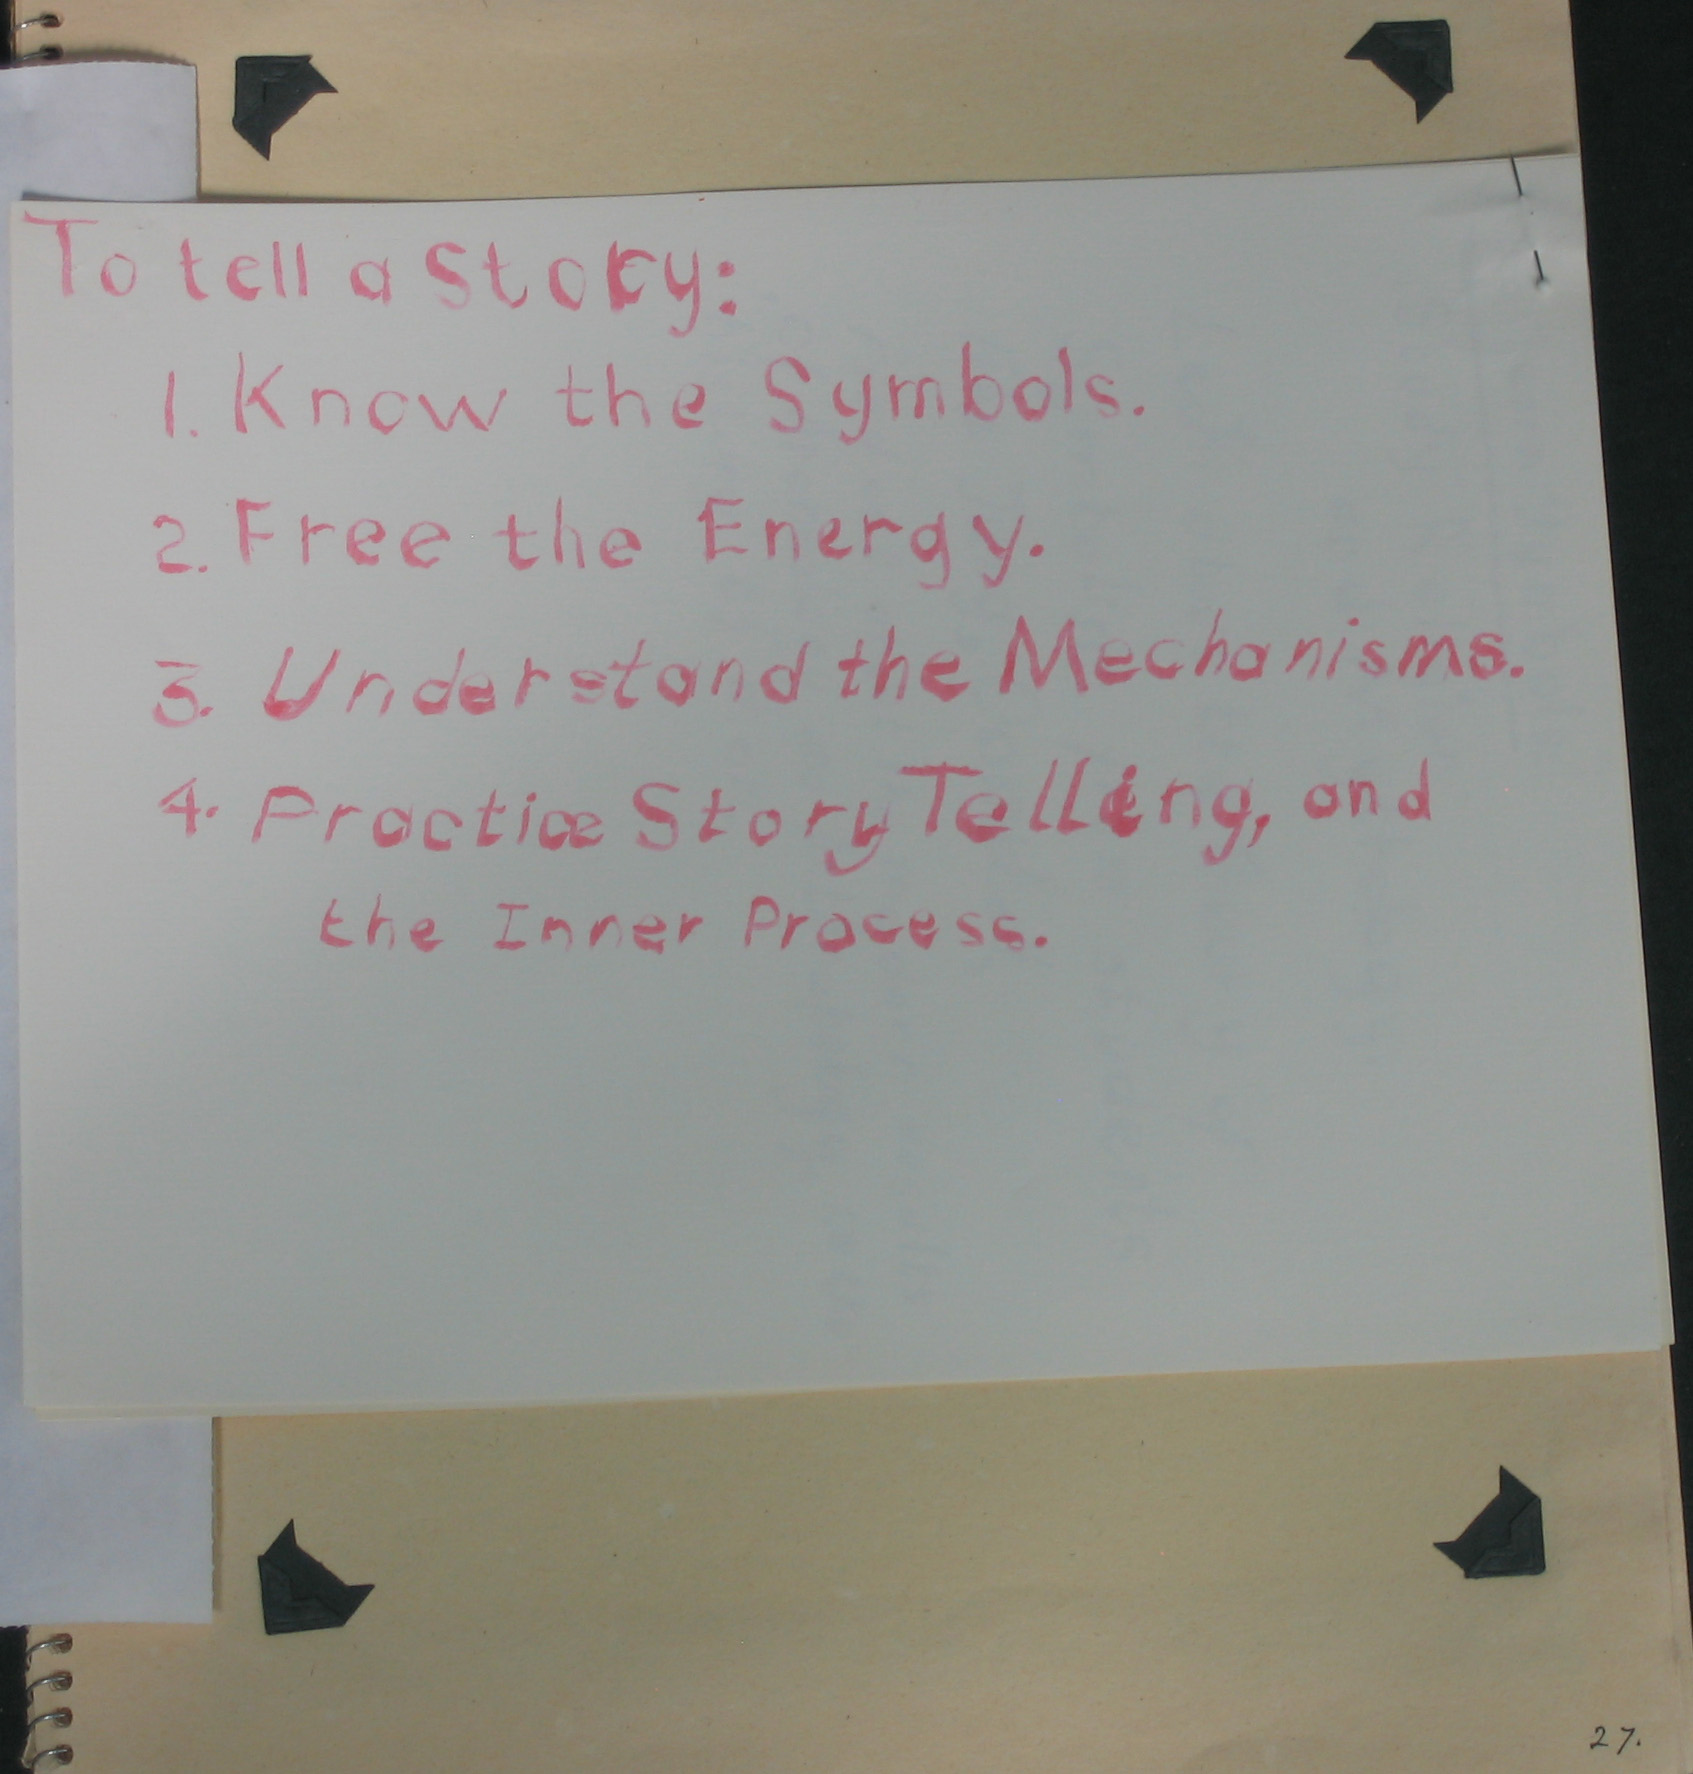 To tell a Story:
1. Know the Symbols.
2. Free the Energy.
3. Understand the Mechanisms.
4. Practice Story Telling, and
the Inner Process.
27.